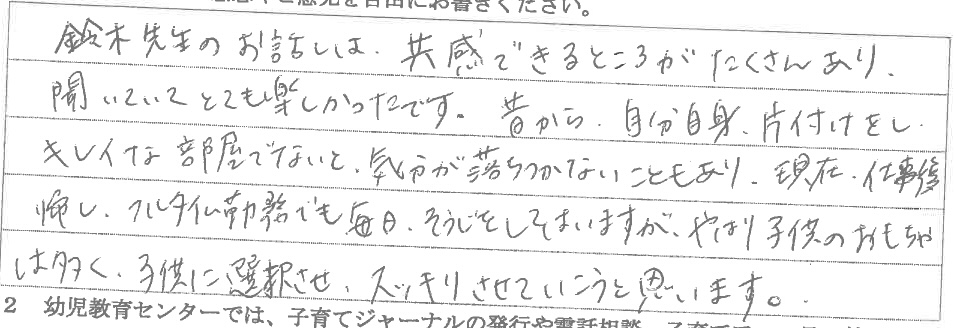 ご意見を自由にお書きください。
鈴木先生のお話しは、共感できるところがたくさんあり、
聞いていてとても楽しかったです。昔から、自分自身、片付けをし、
キレイな部屋でないと、気分が落ちつかないこともあり、現在、仕事復
帰し、フルタイム勤務でも毎日、そうじをしてはいますが、やはり子供のおもちゃ
は多く、子供に選択させ、スッキリさせていこうと思います。
2 幼児教育センターでは、子育てジャーナルの発行や電話相談、子育て